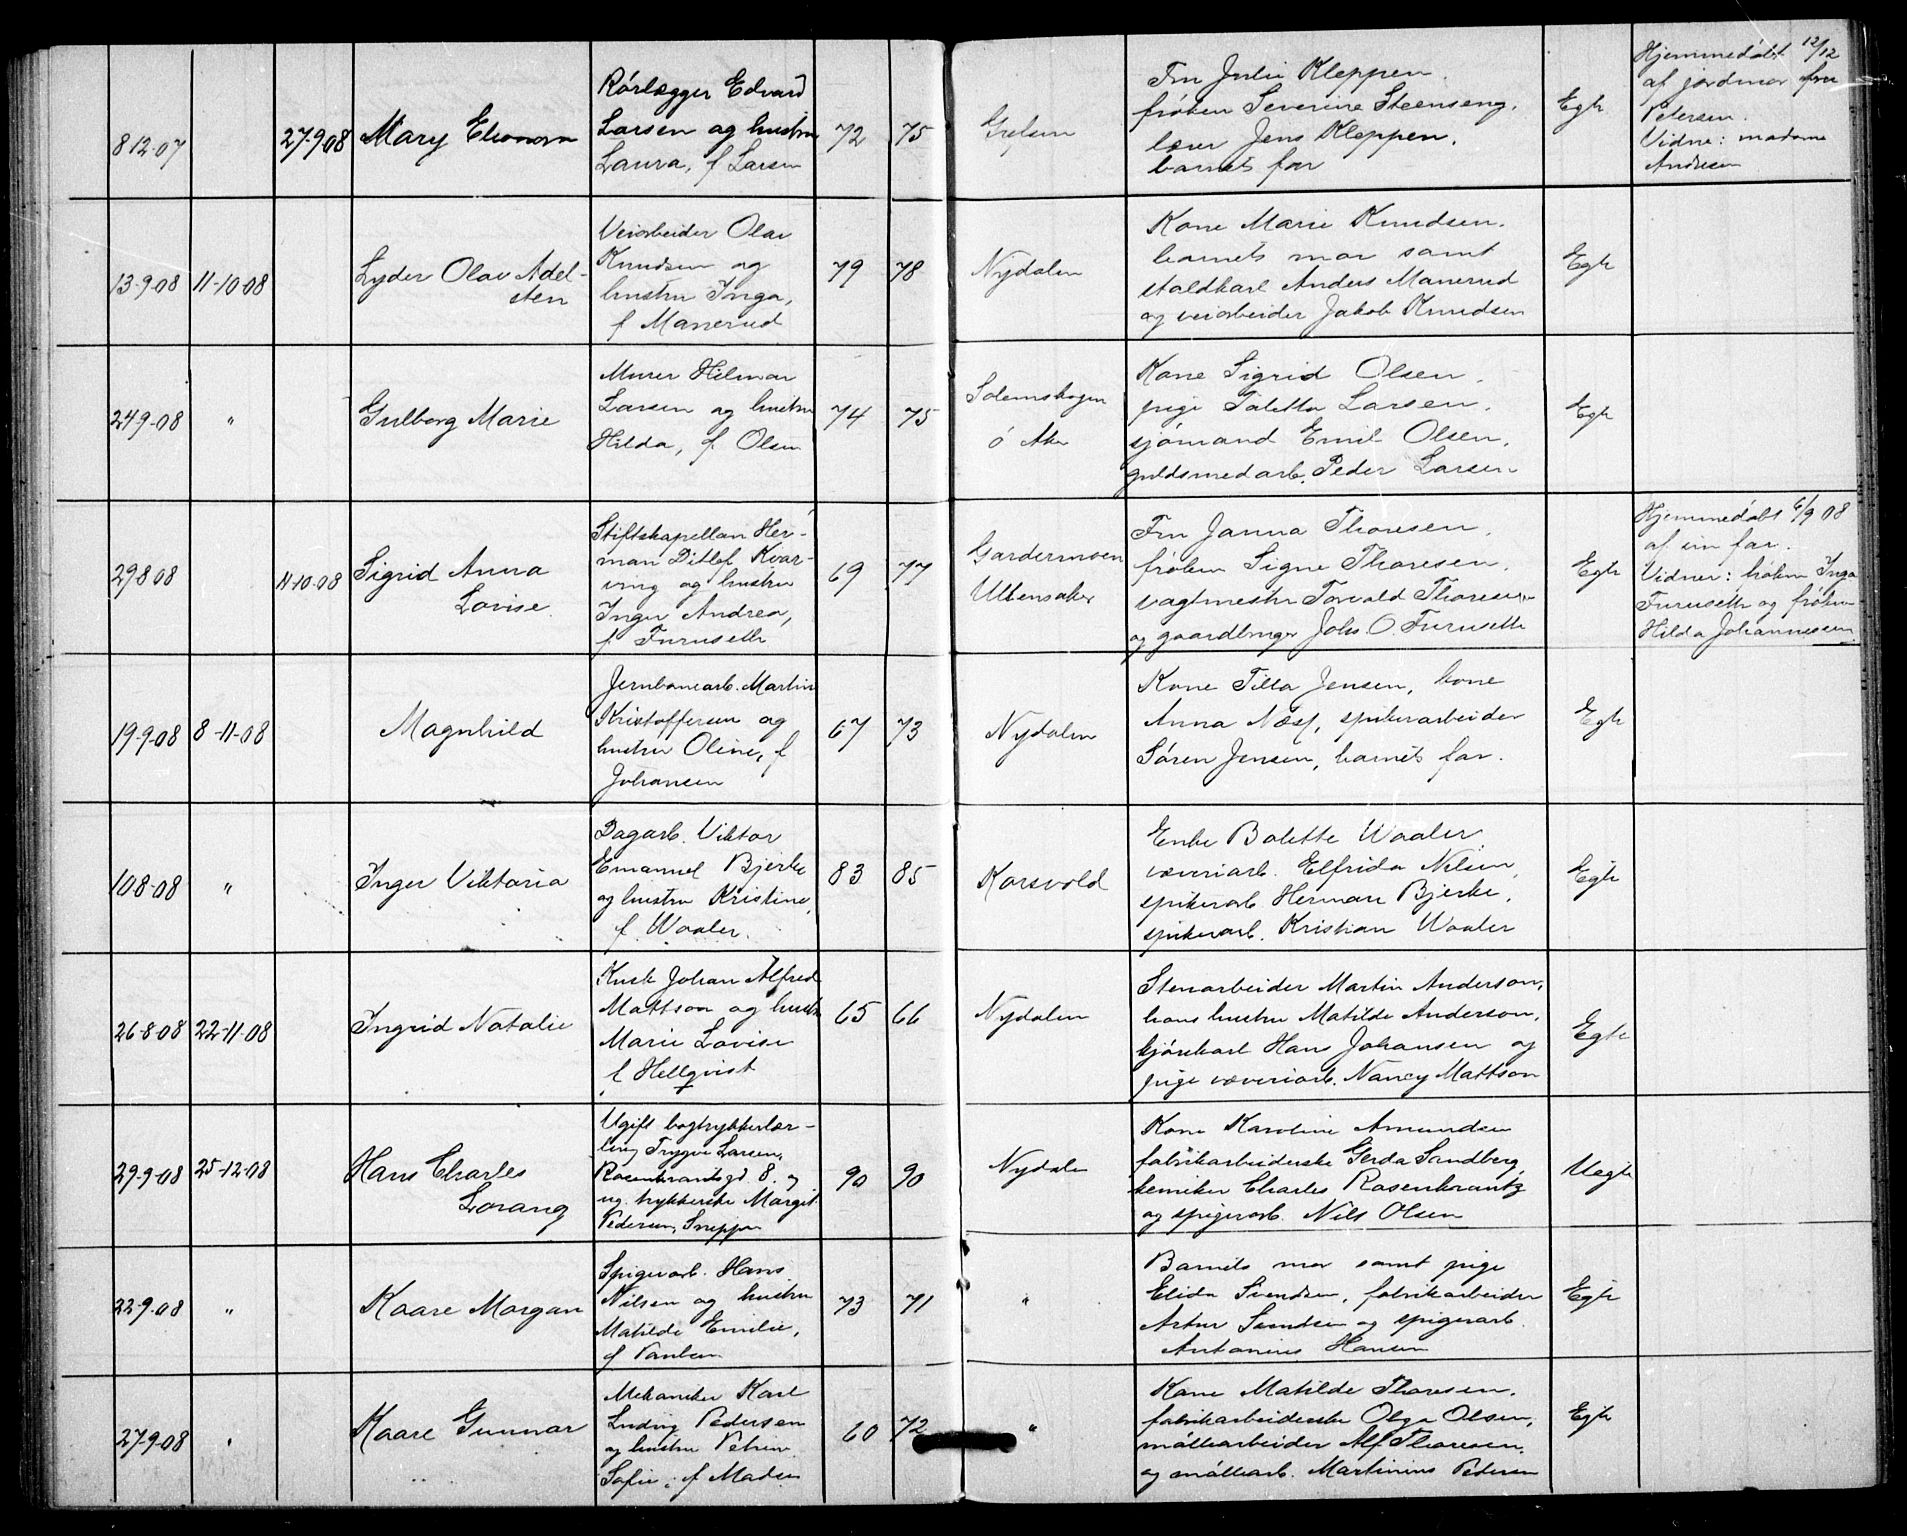 8 12-07
27-9 08
Mary Eleonora
Rörlægger Edvard
Larsen og hustru
Laura, f Larsen
72
75
Grefsen
Fru Julie Kleppen.
fröken Severine Steenseng.
lærer Jens Kleppen.
barnets far
Egte
Hjemmedöbt 12/12
af jordmor fru
Petersen.
Vidne: madame
Andresen
13-9-08
11-10-08
Lyder Olav Adel-
sten
Veiarbeider Olav
Knudsen og
hustru Inga,
f Manerud
79
78
Nydalen
Kone Marie Knudsen.
barnets mor samt
staldkarl Anders Manerud
og veiarbeider Jakob Knudsen
Egte
24-9-08
"
Gulborg Marie
Murer Hilmar
Larsen og hustru
Hilda, f Olsen
74
75
Solemskogen
ö Aker
Kone Sigrid Olsen.
pige Taletta Larsen.
sjömand Emil Olsen.
guldsmedarb. Peder Larsen
Egte
29-8-08
11-10-08
Sigrid Anna
Lovise
Stiftskapellan Her-
man Ditlef Kvar-
ving og hustru
Inger Andrea,
f Furuseth
69
77
Gardermoen
Ullensaker
Fru Janna Thoresen.
fröken Signe Thoresen.
vagtmester Torvald Thoresen
og gaardbruger Johs. O. Furuseth
Egte
Hjemmedöbt 6/9 08
af sin far.
Vidner: fröken Inga
Furuseth og fröken
Hilda Johannessen
19-9-08
8-11-08
Magnhild
Jernbanearb. Martin
Kristoffersen og
hustru Oline, f
Johansen
67
73
Nydalen
Kone Tilla Jensen, kone
Anna Næss, spikerarbeider
Sören Jensen, barnets far.
Egte
10-8-08
"
Inger Viktoria
Dagarb. Viktor
Emanuel Bjerke
og hustru Kristine,
f. Waaler.
83
85
Korsvold
Enke Bolette Waaler
væveriarb. Elfrida Nilsen,
spikerarb Herman Bjerke,
spikerarb. Kristian Waaler
Egte
26-8-08
22-11-08
Ingrid Natalie
Kusk Johan Alfred
Mattson og hustru
Marie Lovise
f Hellqvist
65
66
Nydalen
Stenarbeider Martin Anderson,
hans hustru Matilde Anderson,
kjörekarl Hans Johansen og
pige væveriarb. Nancy Mattson
Egte
29-9-08
25-12-08
Hans Charles
Lorang
Ugift bogtrykkerlær-
ling Trygve Larsen,
Rosenkrantsgd 8. og
ug. trykkerske Margit
Pedersen, Snippen
90
90
Nydalen
Kone Karoline Amundsen
fabrikarbeiderske Gerda Sandberg,
kemiker Charles Rosenkrantz
og spigerarb. Nils Olsen
Uegte
22-9-08
"
Kaare Morgan
Spigerarb. Hans
Nilsen og hustru
Matilde Emilie,
f Paulsen
73
71
"
Barnets mor samt pige
Elida Svendsen, fabrikarbeider
Artur Svendsen og spigerarb.
Antonius Hansen
Egte
27-9-08
"
Kaare Gunnar
Mekaniker Karl
Ludvig Pedersen
og hustru Petrine
Sofie, f Madsen
60
72
"
Kone Matilde Thoresen.
fabrikarbeiderske Olga Olsen,
möllearbeider Alf Thoresen.
og möllearb. Martinius Pedersen
Egte